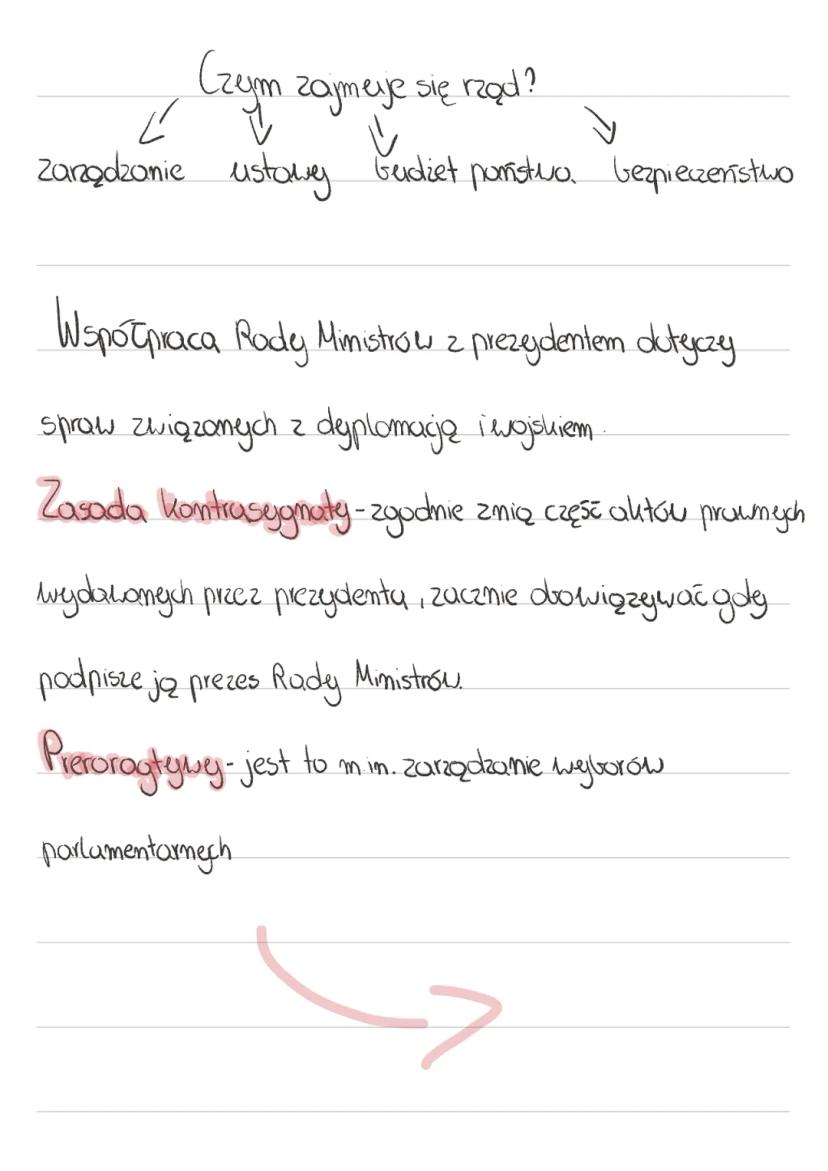 Czym zajmuje się rząd?
zarządzanie ustawy budżet państwa. bezpieczeństwo
Współpraca Rady Ministrów z prezydentem dotyczy
spraw związanych z dyplomacją i wojskiem.
Zasada kontrasygnaty - zgodnie z nią część aktów prawnych
wydawanych przez prezydenta, zacznie obowiązywać gdy
podpisze ją prezes Rady Ministrów.
Preroragtywy - jest to m.in. zarządzanie wyborów
parlamentarnych